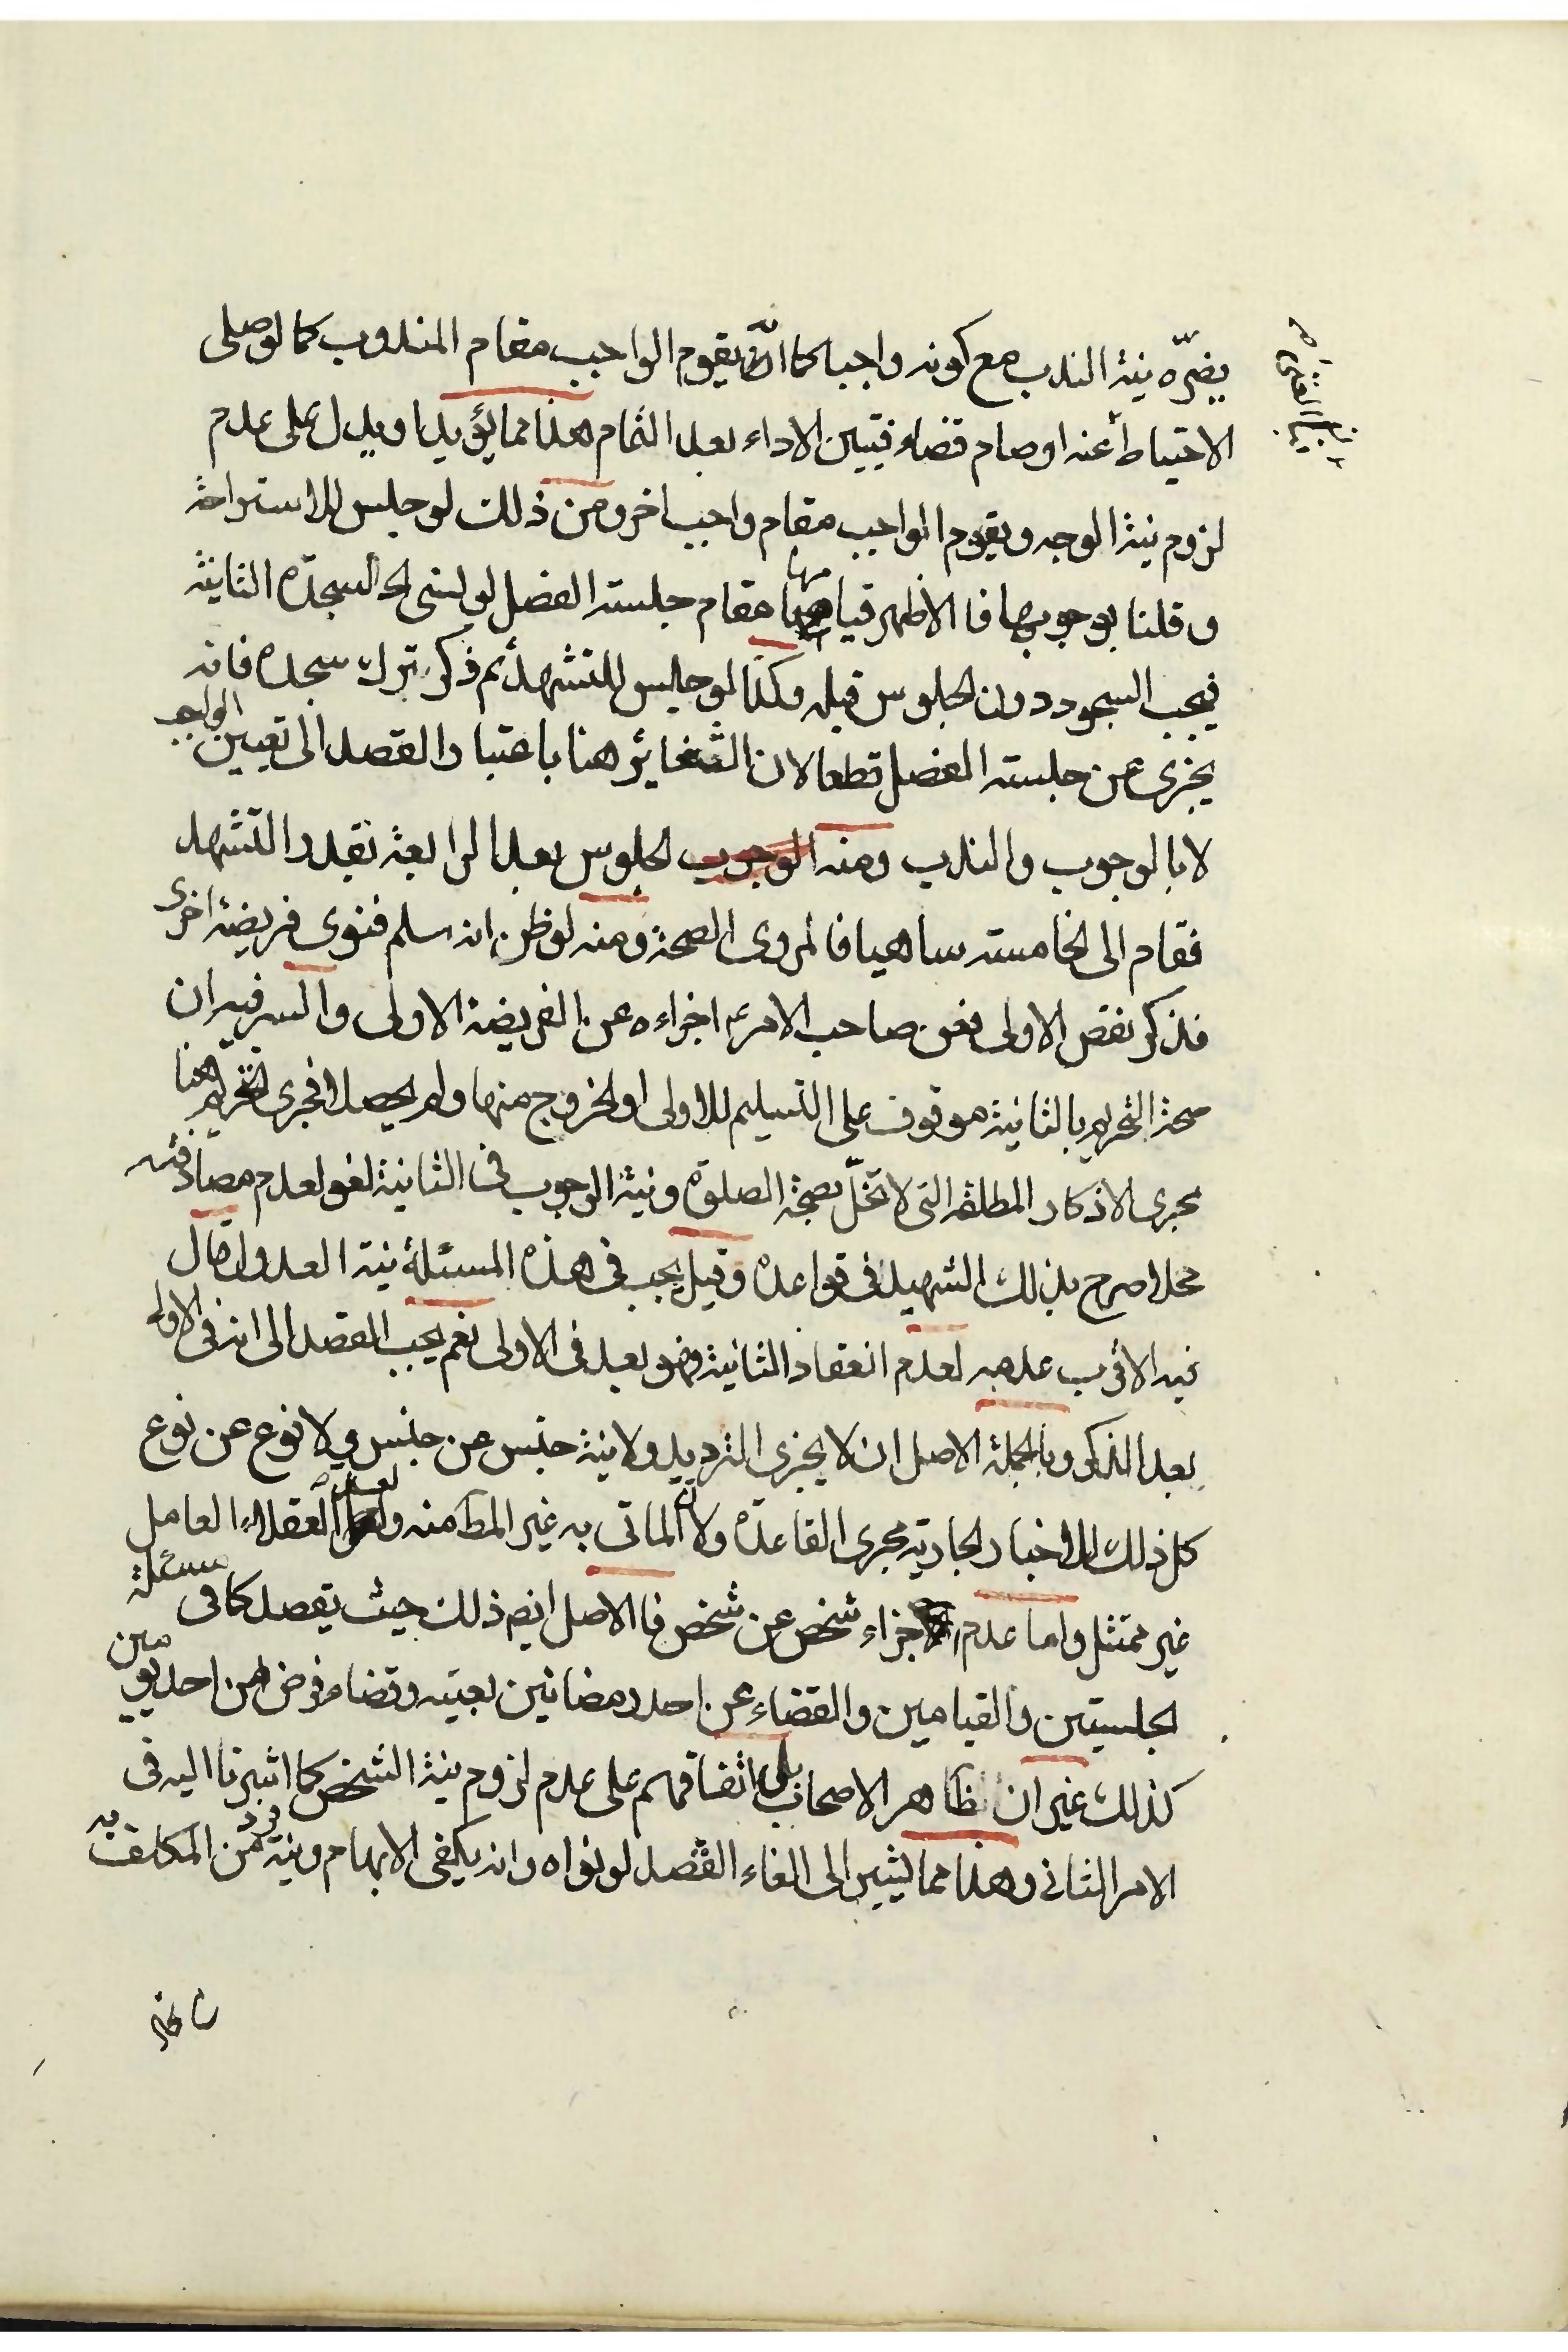 يضرّه نية الندب مع كونه واجبا كما انّه يقوم الواجب مقام المندوب كما لو صلى
الاحتياط عنه او صام قضاء فتبين الاداء بعد التمام هذا مما يؤيد او يدل على عدم
لزوم نية الوجه ويقوم الواجب مقام واجب اخر ومن ذلك لو جلس للاستراحة
وقلنا بوجوبها فالاظهر قيامها مقام جلسته الفصل لو نسى السجدة الثانية
فيجب السجود دون الجلوس قبله وكذا لو جلس للتشهد ثم ذكر ترك سجدة فانه
يجزى عن جلسته الفصل قطعا لان التغاير هنا باعتبار القصد الى تعيين الواجب
لا بالوجوب والندب ومنه الجلوس بعد الرابعة بقدر التشهد
فقام الى الخامسته ساهيا فالمروى الصحة ومنه لو ظن انه سلم فنوى فريضة اخرى
فذكر نقص الاولى فعن صاحب الامر ع اجزاءه عن الفريضة الاولى والسر فيه ان
صحة التحريم بالثانية موقوف على التسليم للاولى او الخروج منها ولم يحصلا فجرى التحريم هنا
مجرى الاذكار المطلقة التى لا تخلّ بصحة الصلوة ونية الوجوب فى الثانية لغو لعدم مصادفته
محلا صرح بذلك الشهيد فى قواعده وقيل يجب فى هذه المسئلة نية العدول قال
فيه الاقرب عدمه لعدم انعقاد الثانية فهو بعد فى الاولى نعم يجب القصد الى انه فى الاولى
بعد الذكر وبالجملة الاصل ان لا يجزى الترديد ولا نية جنس عن جنس ولا نوع عن نوع
كل ذلك للاخبار الجارية مجرى القاعدة ولان الماتى به غير المط منه ولعد العقلاء العامل
غير ممتثل واما عدم اجزاء شخص عن شخص فالاصل ايضا ذلك حيث يقصد كما فى مسئلة
الجلستين والقيامين والقضاء عن احد رمضانين بعينه وقضاء فرض من احد يومين
كذلك غير ان ظاهر الاصحاب بل اتفاقهم على عدم لزوم نية الشخص كما اشرنا اليه فى
الامر الثانى وهذا مما يشير الى الغاء القصد لو نواه وانه يكفى الابهام ونية فرد من المكلف به